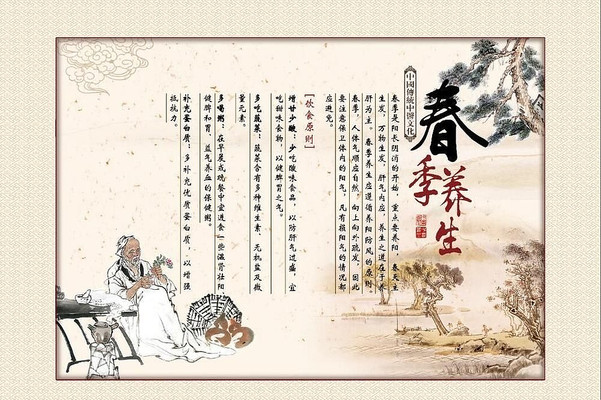 春季养生
中國傳統中醫文化
春季是阳长阴消的开始，重点要养阳，春天主
生发，万物生发，肝气内应，养生之道在于养
肝为主。春季养生应遵循养阳防风的原则。
春季，人体气顺应自然，向上向外疏发，因此
要注意保卫体内的阳气，凡有损阳气的情况都
应避免。
[饮食原则]
增甘少酸：少吃酸味食品，以防肝气过盛，宜
吃甜味食物，以健脾胃之气。
多吃蔬菜：蔬菜含有多种维生素、无机盐及微
量元素。
多喝粥：在早晨或晚餐中宜进食一些温肾壮阳、
健脾和胃、益气养血的保健粥。
补充蛋白质：多补充优质蛋白质，以增强
抵抗力。